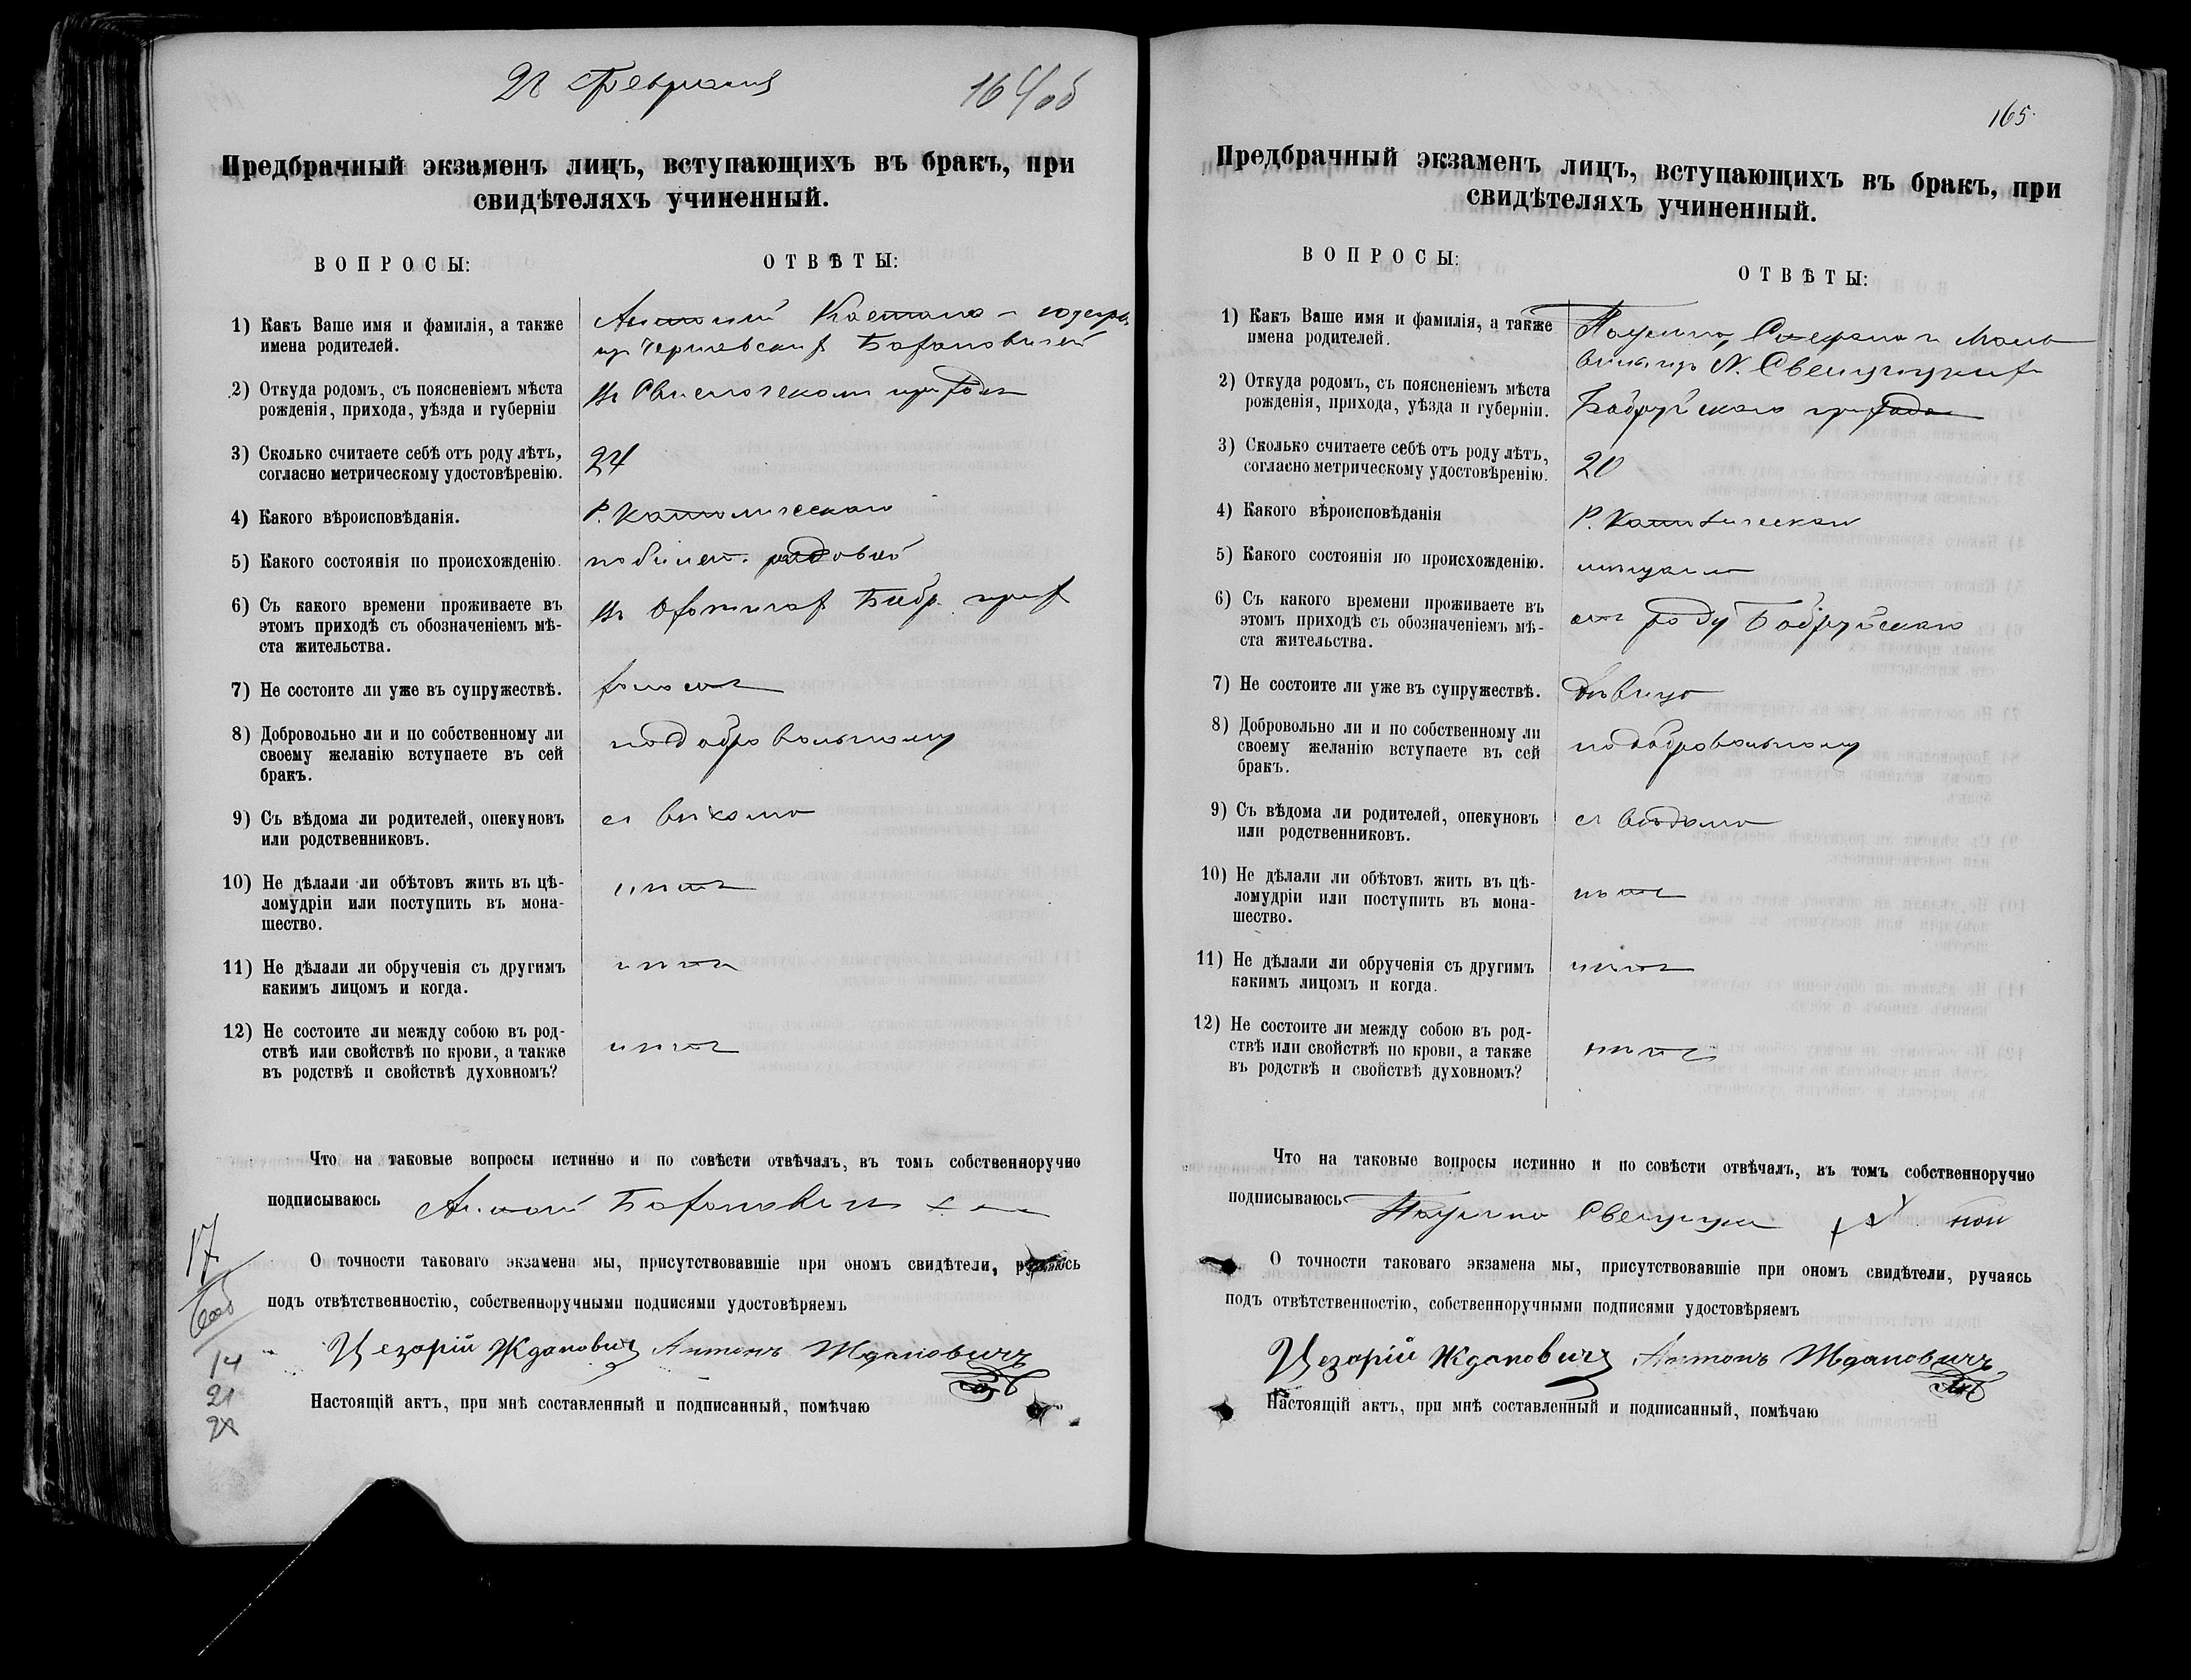 28 Февраля
164об
Предбрачный экзаменъ лицъ, вступающихъ въ бракъ, при
свидѣтеляхъ учиненный.
ВОПРОСЫ:
ОТВѢТЫ:
1) Какъ Ваше имя и фамилія, а также
имена родителей.
Антоній
Барановичей
2) Откуда родомъ, съ поясненіемъ мѣста
рожденія, прихода, уѣзда и губерніи
въ Свислочскомъ приходѣ
3) Сколько считаете себѣ отъ роду лѣтъ,
согласно метрическому удостовѣренію.
24
4) Какого вѣроисповѣданія.
Р. Католическаго
5) Какого состоянія по происхожденію.
рядовой
6) Съ какого времени проживаете въ
этомъ приходѣ съ обозначеніемъ мѣ-
ста жительства.
въ
7) Не состоите ли уже въ супружествѣ.
холостъ
8) Добровольно ли и по собственному ли
своему желанію вступаете въ сей
бракъ.
по добровольному
9) Съ вѣдома ли родителей, опекуновъ
или родственниковъ.
съ вѣдома
10) Не дѣлали ли обѣтовъ жить въ цѣ-
ломудріи или поступить въ мона-
шество.
нѣтъ
11) Не дѣлали ли обрученія съ другимъ
какимъ лицомъ и когда.
нѣтъ
12) Не состоите ли между собою въ род-
ствѣ или свойствѣ по крови, а также
въ родствѣ и свойствѣ духовномъ?
нѣтъ
Что на таковые вопросы истинно и по совѣсти отвѣчалъ, въ томъ собственноручно
подписываюсь Антоній Барановичъ
О точности таковаго экзамена мы, присутствовавшіе при ономъ свидѣтели, ручаясь
подъ отвѣтственностію, собственноручными подписями удостовѣряемъ
Цезарій Ждановичъ Антонъ Ждановичъ
Настоящій актъ, при мнѣ составленный и подписанный, помѣчаю
17
14
21
165.
Предбрачный экзаменъ лицъ, вступающихъ въ бракъ, при
свидѣтеляхъ учиненный.
ВОПРОСЫ:
ОТВѢТЫ:
1) Какъ Ваше имя и фамилія, а также
имена родителей.
Паулина, Стефана и Маль
вины изъ N. Свенцицкихъ
2) Откуда родомъ, съ поясненіемъ мѣста
рожденія, прихода, уѣзда и губерніи.
Бобруйскаго прихода
3) Сколько считаете себѣ отъ роду лѣтъ,
согласно метрическому удостовѣренію.
20
4) Какого вѣроисповѣданія
Р. Католическая
5) Какого состоянія по происхожденію.
6) Съ какого времени проживаете въ
этомъ приходѣ съ обозначеніемъ мѣ-
ста жительства.
отъ роду Бобруйскаго
7) Не состоите ли уже въ супружествѣ.
дѣвица
8) Добровольно ли и по собственному ли
своему желанію вступаете въ сей
бракъ.
по добровольному
9) Съ вѣдома ли родителей, опекуновъ
или родственниковъ.
съ вѣдома
10) Не дѣлали ли обѣтовъ жить въ цѣ-
ломудріи или поступить въ мона-
шество.
нѣтъ
11) Не дѣлали ли обрученія съ другимъ
какимъ лицомъ и когда.
нѣтъ
12) Не состоите ли между собою въ род-
ствѣ или свойствѣ по крови, а также
въ родствѣ и свойствѣ духовномъ?
нѣтъ
Что на таковые вопросы истинно и по совѣсти отвѣчалъ, въ томъ собственноручно
подписываюсь Паулина
О точности таковаго экзамена мы, присутствовавшіе при ономъ свидѣтели, ручаясь
подъ отвѣтственностію, собственноручными подписями удостовѣряемъ
Цезарій Ждановичъ Антонъ Ждановичъ
Настоящій актъ, при мнѣ составленный и подписанный, помѣчаю